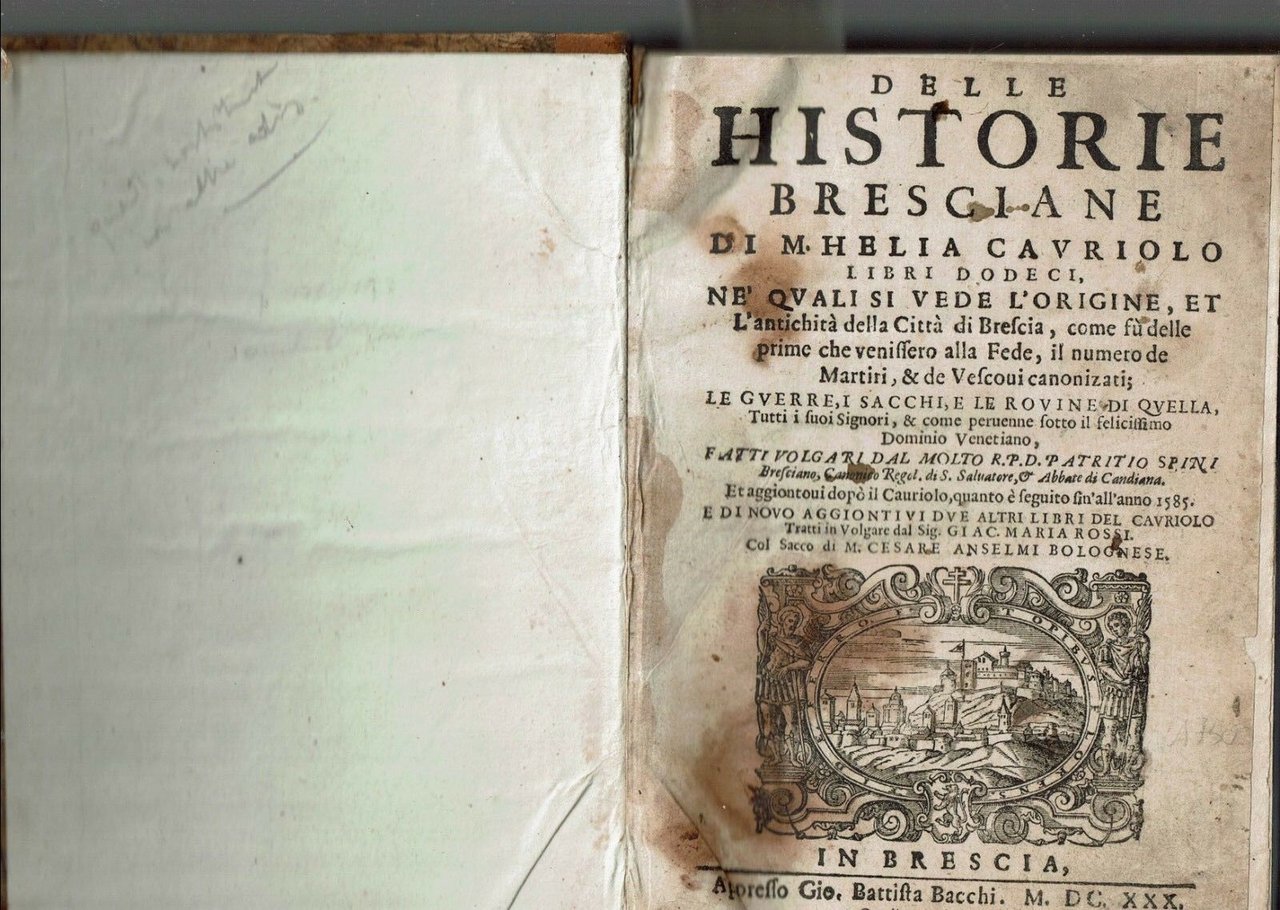 DELLE
HISTORIE
BRESCIANE
DI M. HELIA CAVRIOLO
LIBRI DODECI,
NE' QVALI SI VEDE L'ORIGINE, ET
L'antichità della Città di Breſcia, come fù delle
prime che veniſſero alla Fede, il numero de
Martiri, & de Veſcoui canonizati;
LE GVERRE, I SACCHI, E LE ROVINE DI QVELLA,
Tutti i ſuoi Signori, & come peruenne ſotto il feliciſſimo
Dominio Venetiano,
FATTI VOLGARI DAL MOLTO R.P.D. PATRITIO SPINI
Breſciano, Canonico Regol. di S. Saluatore, & Abbate di Candiana.
Et aggiontoui dopò il Cauriolo, quanto è ſeguito ſin'all'anno 1585.
E DI NOVO AGGIONTI VI DVE ALTRI LIBRI DEL CAVRIOLO
Tratti in Volgare dal Sig. GIAC. MARIA ROSSI.
Col Sacco di M. CESARE ANSELMI BOLOGNESE.
ET OPIBVS
IN BRESCIA,
Appreſſo Gio. Battiſta Bacchi. M. DC. XXX.